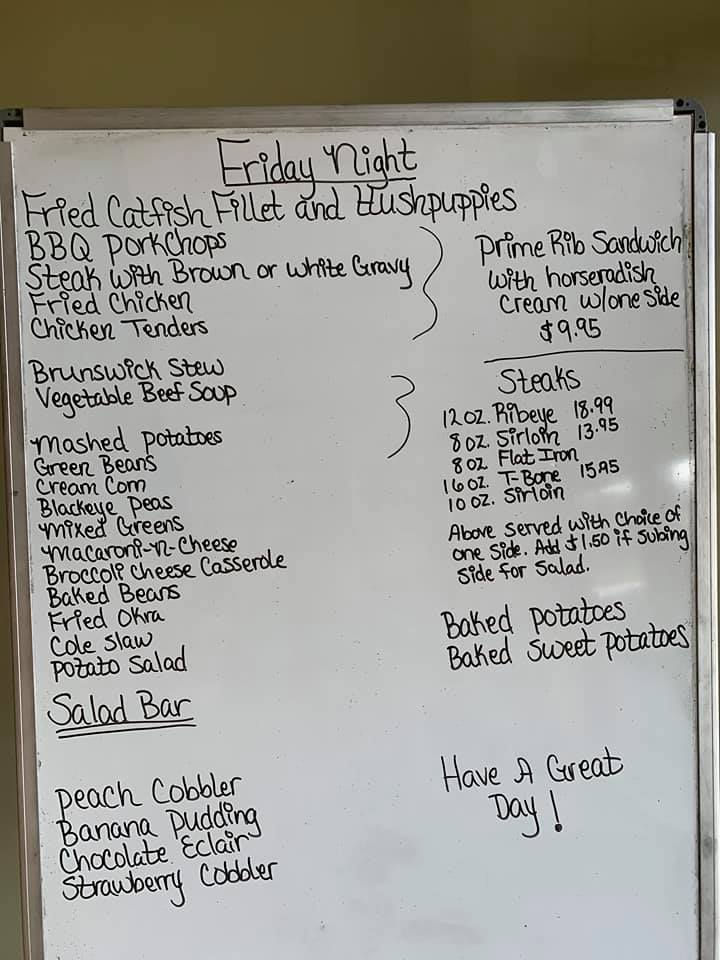 Friday Night
Fried Catfish Fillet and Hushpuppies
BBQ Porkchops
Steak with Brown or white Gravy
Fried Chicken
Chicken Tenders
Brunswick Stew
Vegetable Beef Soup
Mashed potatoes
Green Beans
Cream Corn
Blackeye Peas
Mixed Greens
Macaroni-n-Cheese
Broccoli Cheese Casserole
Baked Beans
Fried Okra
Cole Slaw
Potato Salad
Salad Bar
Peach Cobbler
Banana Pudding
Chocolate Eclair
Strawberry Cobbler
Prime Rib Sandwich
with horseradish
Cream w/one side
$9.95
Steaks
12 oz. Ribeye 18.99
8 oz. Sirloin 13.95
8 oz. Flat Iron
16 oz. T-Bone 15.95
10 oz. Sirloin
Above served with Choice of
one side. Add $1.50 if subing
side for salad.
Baked potatoes
Baked sweet potatoes
Have A Great
Day!